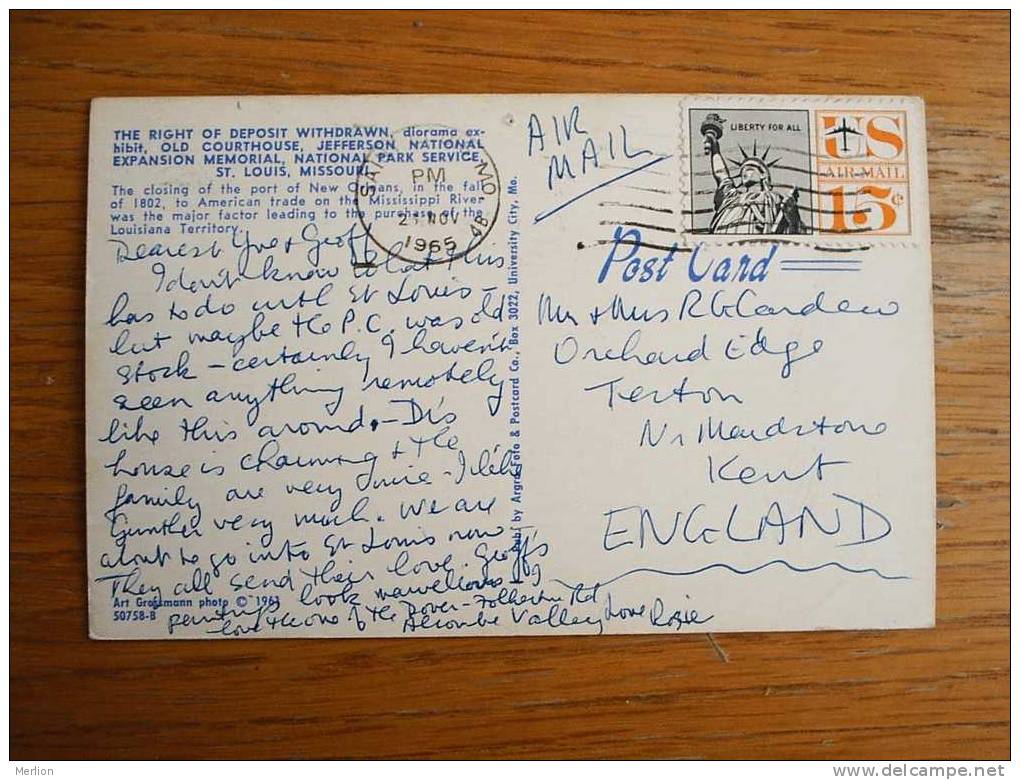 THE RIGHT OF DEPOSIT WITHDRAWN, diorama ex-
hibit, OLD COURTHOUSE, JEFFERSON NATIONAL
EXPANSION MEMORIAL, NATIONAL PARK SERVICE,
ST. LOUIS, MISSOURI
The closing of the port of New Orleans, in the fall
of 1802, to American trade on the Mississippi River
was the major factor leading to the purchase of the
Louisiana Territory.
Dearest Yve + Geoff
I don't know what this
has to do with St Louis -
but maybe the P.C. was old
stock - certainly I haven't
seen anything remotely
like this around. - Di's
house is charming & the
family are very - I like
Gunther very much. We are
about to go into St Louis now
They all send their love. Geoff's
paintings look marvellous - I
love the one of the Dover - Folkestone Rd
Valley Love Rosie
Art Grossmann photo © 1961
50758-B
Pub. by Argro Foto & Postcard Co., Box 3022, University City, Mo.
MO
PM
NOV
1965
4B
AIR
MAIL
LIBERTY FOR ALL
US
AIR MAIL
15¢
Post Card
Mr & Mrs R G Cardew
Orchard Edge
Teston
Nr Maidstone
Kent
ENGLAND
Merlion
delcampe.net